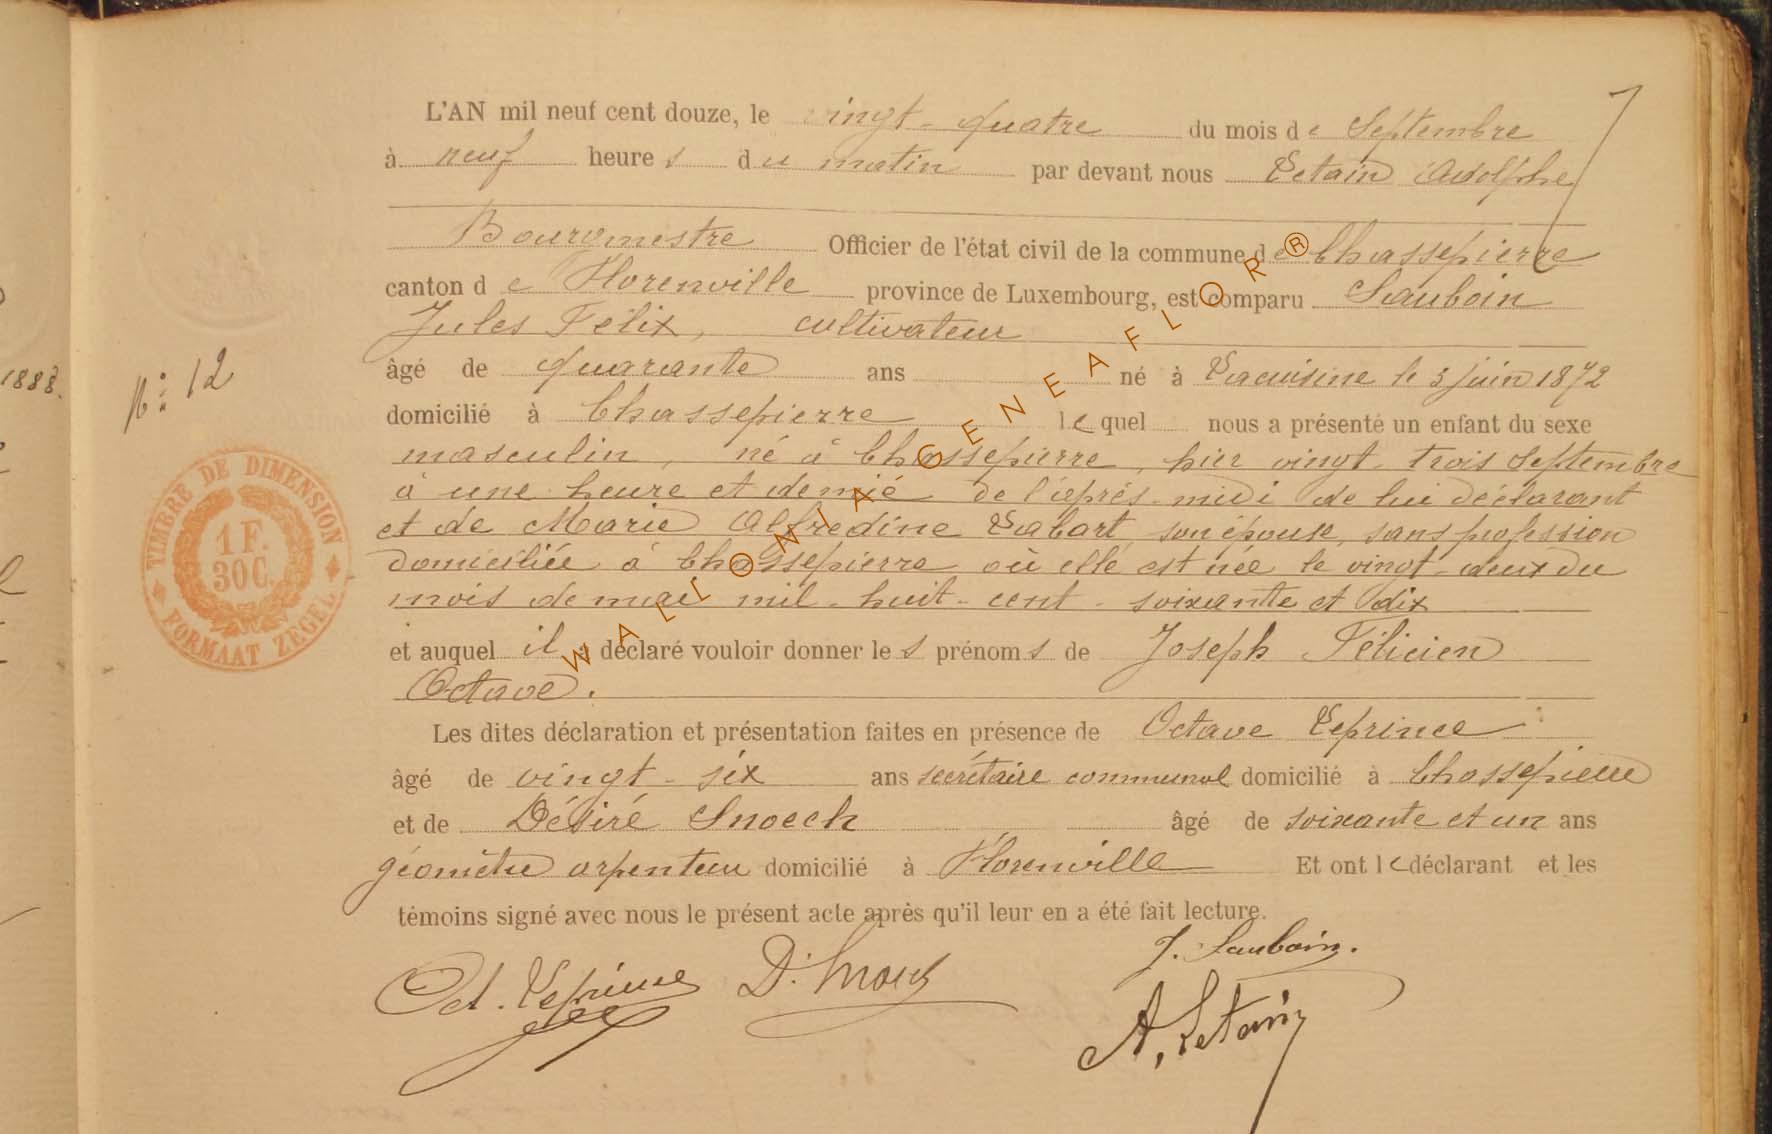 L'AN mil neuf cent douze, le vingt-quatre du mois de Septembre
à neuf heures du matin par devant nous Letain Adolphe
Bourgmestre Officier de l'état civil de la commune de Chassepierre
canton de Florenville province de Luxembourg, est comparu Sauboin
Jules Félix, cultivateur
âgé de quarante ans né à Lacuisine le 3 juin 1872
domicilié à Chassepierre lequel nous a présenté un enfant du sexe
masculin, né à Chassepierre, hier vingt-trois Septembre
à une heure et demie de l'après-midi de lui déclarant
et de Marie Alfredine Labart son épouse, sans profession
domiciliée à Chassepierre où elle est née le vingt-deux du
mois de mai mil-huit-cent-soixante et dix
et auquel il a déclaré vouloir donner les prénoms de Joseph Félicien
Octave.
Les dites déclaration et présentation faites en présence de Octave Leprince
âgé de vingt-six ans secrétaire communal domicilié à Chassepierre
et de Désiré Snoeck âgé de soixante et un ans
géomètre arpenteur domicilié à Florenville Et ont le déclarant et les
témoins signé avec nous le présent acte après qu'il leur en a été fait lecture.
J. Sauboin.
Oct. Leprince D. Snoeck
A. Letain
N° 12
1888.
TIMBRE DE DIMENSION
1 F.
30 C.
FORMAAT ZEGEL
WALLONIA GENEAFLOR ®